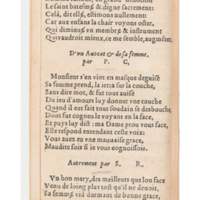 Le saint batesme & digne sacrement:
Cela, dit elle, estimons nullement:
Car aux enfans la chair voyons oster,
Qui diminue en membre & instrument
Qui vaudroit mieux, ce me semble, augmenter.
D'vn Auocat & de sa femme,
par P. C.
Monsieur s'en vint en masque deguisé
Sa femme prend, la ietta sur la couche,
Sans dire mot, & fut tout auisé
Du ieu d'amours luy donner vne touche
Quand il eut fait tous soudain se desbouche,
Dont fut cognus les voyans en la face,
Et puis luy dit: ma Dame prou vous face,
Elle respond entendant ceste voix:
Vous auez fait trop mieux de bonne grace,
Maudit sois il si ie vous cognoissois.
Autrement par S. R.
Vn bon mary, des meilleurs que lon face
Venu de loing plus tost qu'il ne denoit,
Sa femme vid dormant de bonne grace,